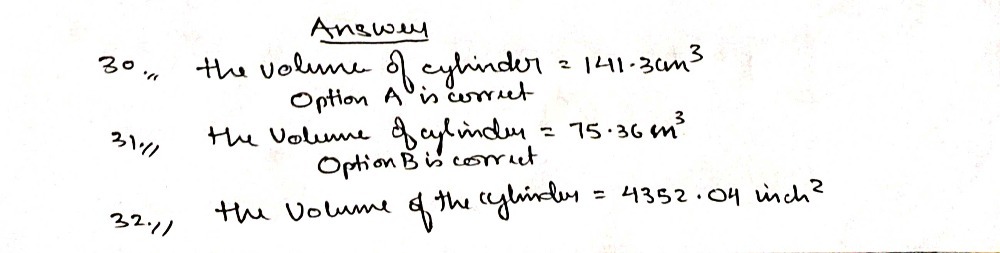 Answer
30.,, the volume of cylinder = 141.3cm³
Option A is correct
31.,, the Volume of cylinder = 75.36 m³
Option B is correct
32.,, the Volume of the cylinder = 4352.04 inch²